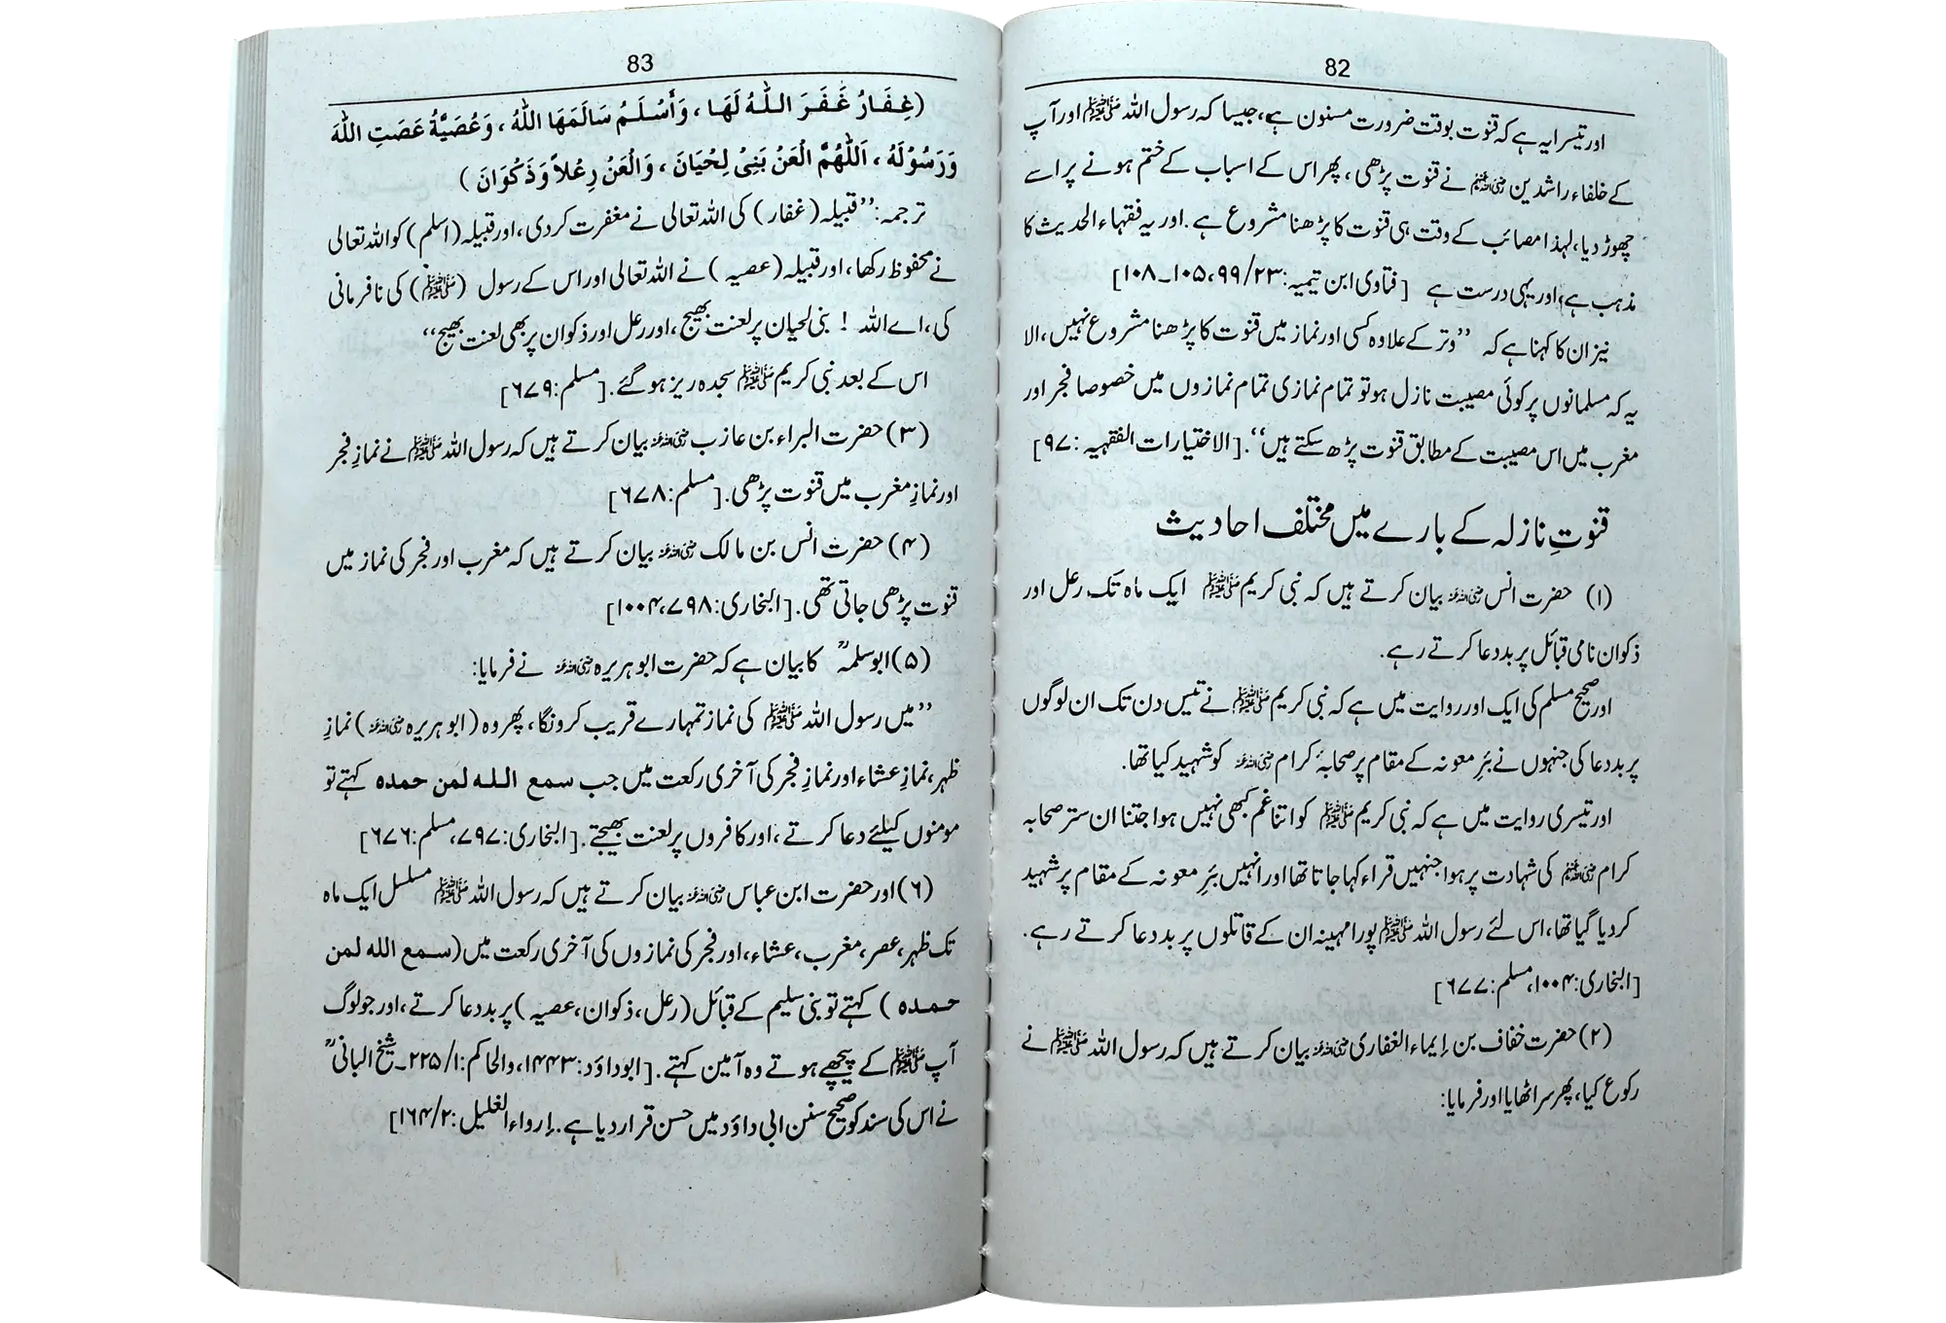 82
اور تیسرا یہ ہے کہ قنوت بوقت ضرورت مسنون ہے، جیسا کہ رسول اللہ ﷺ اور آپ
کے خلفاء راشدین رضی اللہ عنہم نے قنوت پڑھی، پھر اس کے اسباب کے ختم ہونے پر اسے
چھوڑ دیا، لہذا مصائب کے وقت ہی قنوت کا پڑھنا مشروع ہے. اور یہ فقہاء الحدیث کا
مذہب ہے، اور یہی درست ہے [فتاوی ابن تیمیہ: ۲۳/۹۹، ۱۰۵ـ۱۰۸]
نیز ان کا کہنا ہے کہ ’’وتر کے علاوہ کسی اور نماز میں قنوت کا پڑھنا مشروع نہیں، الا
یہ کہ مسلمانوں پر کوئی مصیبت نازل ہو تو تمام نمازی تمام نمازوں میں خصوصا فجر اور
مغرب میں اس مصیبت کے مطابق قنوت پڑھ سکتے ہیں‘‘.[الاختیارات الفقہیہ: ۹۷]
قنوتِ نازلہ کے بارے میں مختلف احادیث
(۱) حضرت انس رضی اللہ عنہ بیان کرتے ہیں کہ نبی کریم ﷺ ایک ماہ تک رعل اور
ذکوان نامی قبائل پر بددعا کرتے رہے.
اور صحیح مسلم کی ایک اور روایت میں ہے کہ نبی کریم ﷺ نے تیس دن تک ان لوگوں
پر بددعا کی جنہوں نے بئرِ معونہ کے مقام پر صحابۂ کرام رضی اللہ عنہم کو شہید کیا تھا.
اور تیسری روایت میں ہے کہ نبی کریم ﷺ کو اتنا غم کبھی نہیں ہوا جتنا ان ستر صحابہ
کرام رضی اللہ عنہم کی شہادت پر ہوا جنہیں قراء کہا جاتا تھا اور انہیں بئرِ معونہ کے مقام پر شہید
کر دیا گیا تھا، اس لئے رسول اللہ ﷺ پورا مہینہ ان کے قاتلوں پر بددعا کرتے رہے.
[البخاری: ۱۰۰۴، مسلم: ۶۷۷]
(۲) حضرت خفاف بن إیماء الغفاری رضی اللہ عنہ بیان کرتے ہیں کہ رسول اللہ ﷺ نے
رکوع کیا، پھر سر اٹھایا اور فرمایا:
83
(غِفَارُ غَفَرَ اللّٰهُ لَهَا، وَأَسْلَمُ سَالَمَهَا اللّٰهُ، وَعُصَيَّةُ عَصَتِ اللّٰهَ
وَرَسُوْلَهُ، اَللّٰهُمَّ الْعَنْ بَنِىْ لِحْيَانَ، وَالْعَنْ رِعْلاً وَذَكْوَانَ)
ترجمہ: ’’قبیلہ (غفار) کی اللہ تعالی نے مغفرت کر دی، اور قبیلہ (اسلم) کو اللہ تعالی
نے محفوظ رکھا، اور قبیلہ (عصیہ) نے اللہ تعالی اور اس کے رسول (ﷺ) کی نافرمانی
کی، اے اللہ! بنی لحیان پر لعنت بھیج، اور رعل اور ذکوان پر بھی لعنت بھیج‘‘
اس کے بعد نبی کریم ﷺ سجدہ ریز ہو گئے.[مسلم: ۶۷۹]
(۳) حضرت البراء بن عازب رضی اللہ عنہ بیان کرتے ہیں کہ رسول اللہ ﷺ نے نمازِ فجر
اور نمازِ مغرب میں قنوت پڑھی.[مسلم: ۶۷۸]
(۴) حضرت انس بن مالک رضی اللہ عنہ بیان کرتے ہیں کہ مغرب اور فجر کی نماز میں
قنوت پڑھی جاتی تھی.[البخاری: ۷۹۸، ۱۰۰۴]
(۵) ابو سلمہؒ کا بیان ہے کہ حضرت ابو ہریرہ رضی اللہ عنہ نے فرمایا:
’’میں رسول اللہ ﷺ کی نماز تمہارے قریب کرونگا، پھر وہ (ابو ہریرہ رضی اللہ عنہ) نمازِ
ظہر، نمازِ عشاء اور نمازِ فجر کی آخری رکعت میں جب سمع اللہ لمن حمدہ کہتے تو
مومنوں کیلئے دعا کرتے، اور کافروں پر لعنت بھیجتے.[البخاری: ۷۹۷، مسلم: ۶۷۶]
(۶) اور حضرت ابن عباس رضی اللہ عنہ بیان کرتے ہیں کہ رسول اللہ ﷺ مسلسل ایک ماہ
تک ظہر، عصر، مغرب، عشاء، اور فجر کی نمازوں کی آخری رکعت میں (سمع اللہ لمن
حمدہ) کہتے تو بنی سلیم کے قبائل (رعل، ذکوان، عصیہ) پر بددعا کرتے، اور جو لوگ
آپ ﷺ کے پیچھے ہوتے وہ آمین کہتے.[ابوداؤد: ۱۴۴۳، والحاکم: ۱/۲۲۵ـ شیخ البانیؒ
نے اس کی سند کو صحیح سنن ابی داؤد میں حسن قرار دیا ہے. إرواء الغلیل: ۲/۱۶۴]